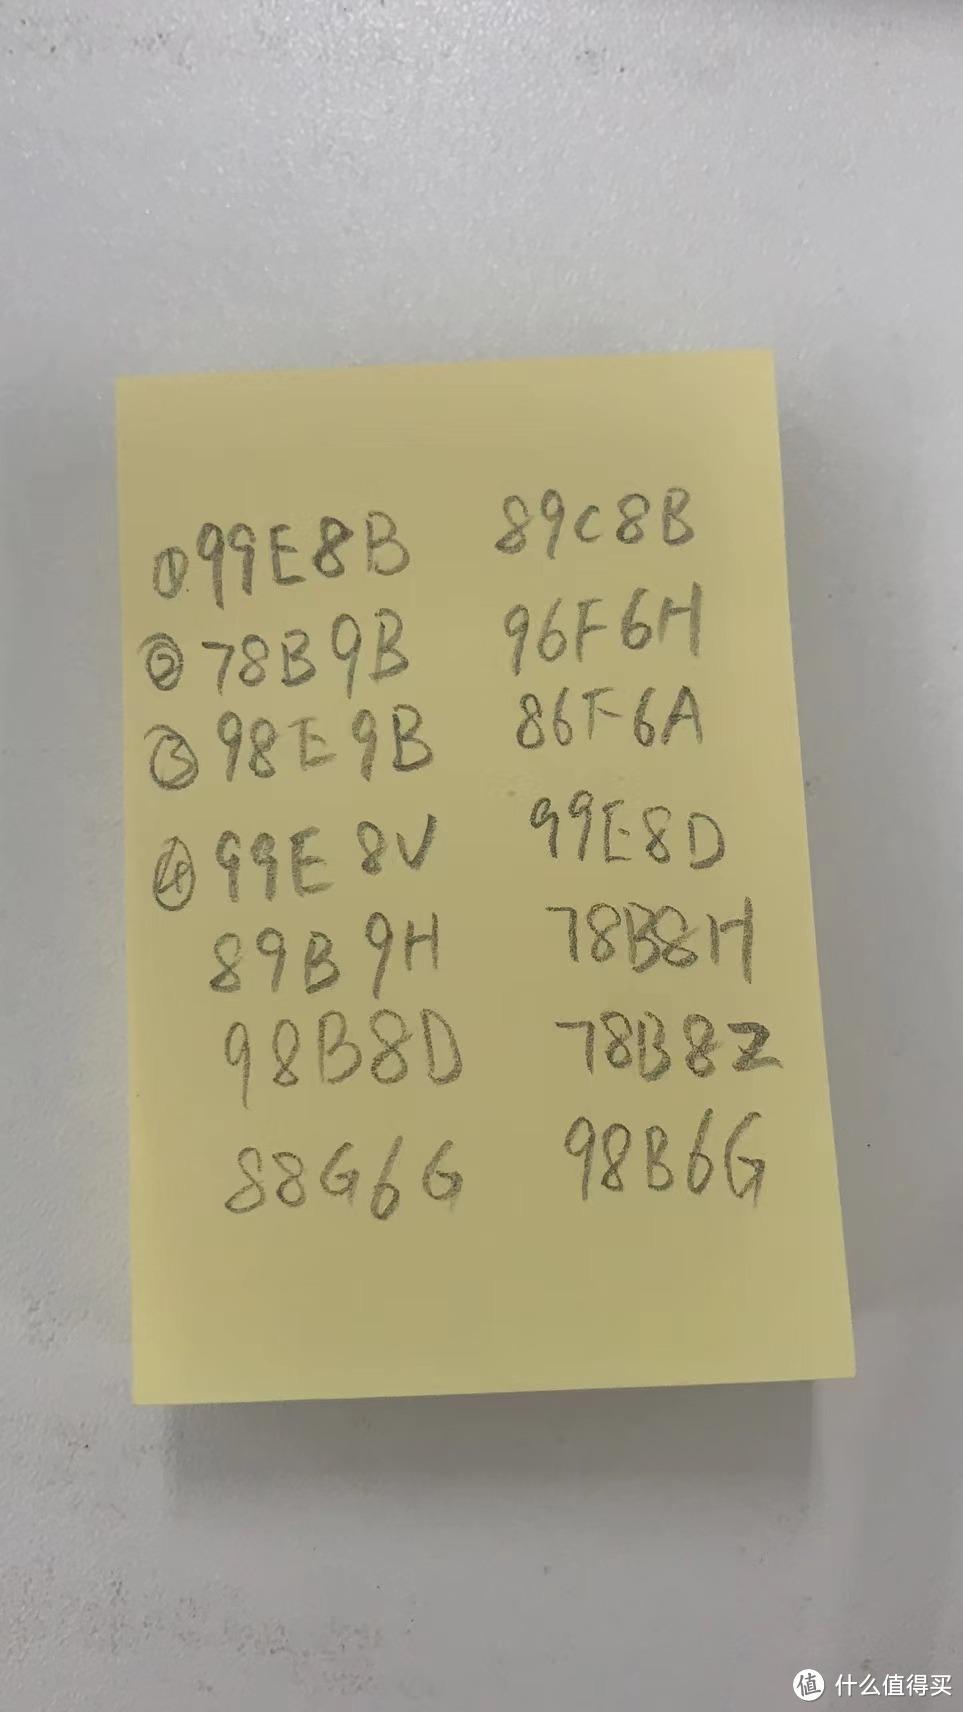 ①99E8B 89C8B
②78B9B 96F6H
③98E9B 86F6A
④99E8V 99E8D
89B9H 78B8H
98B8D 78B8Z
88G6G 98B6G
值 什么值得买